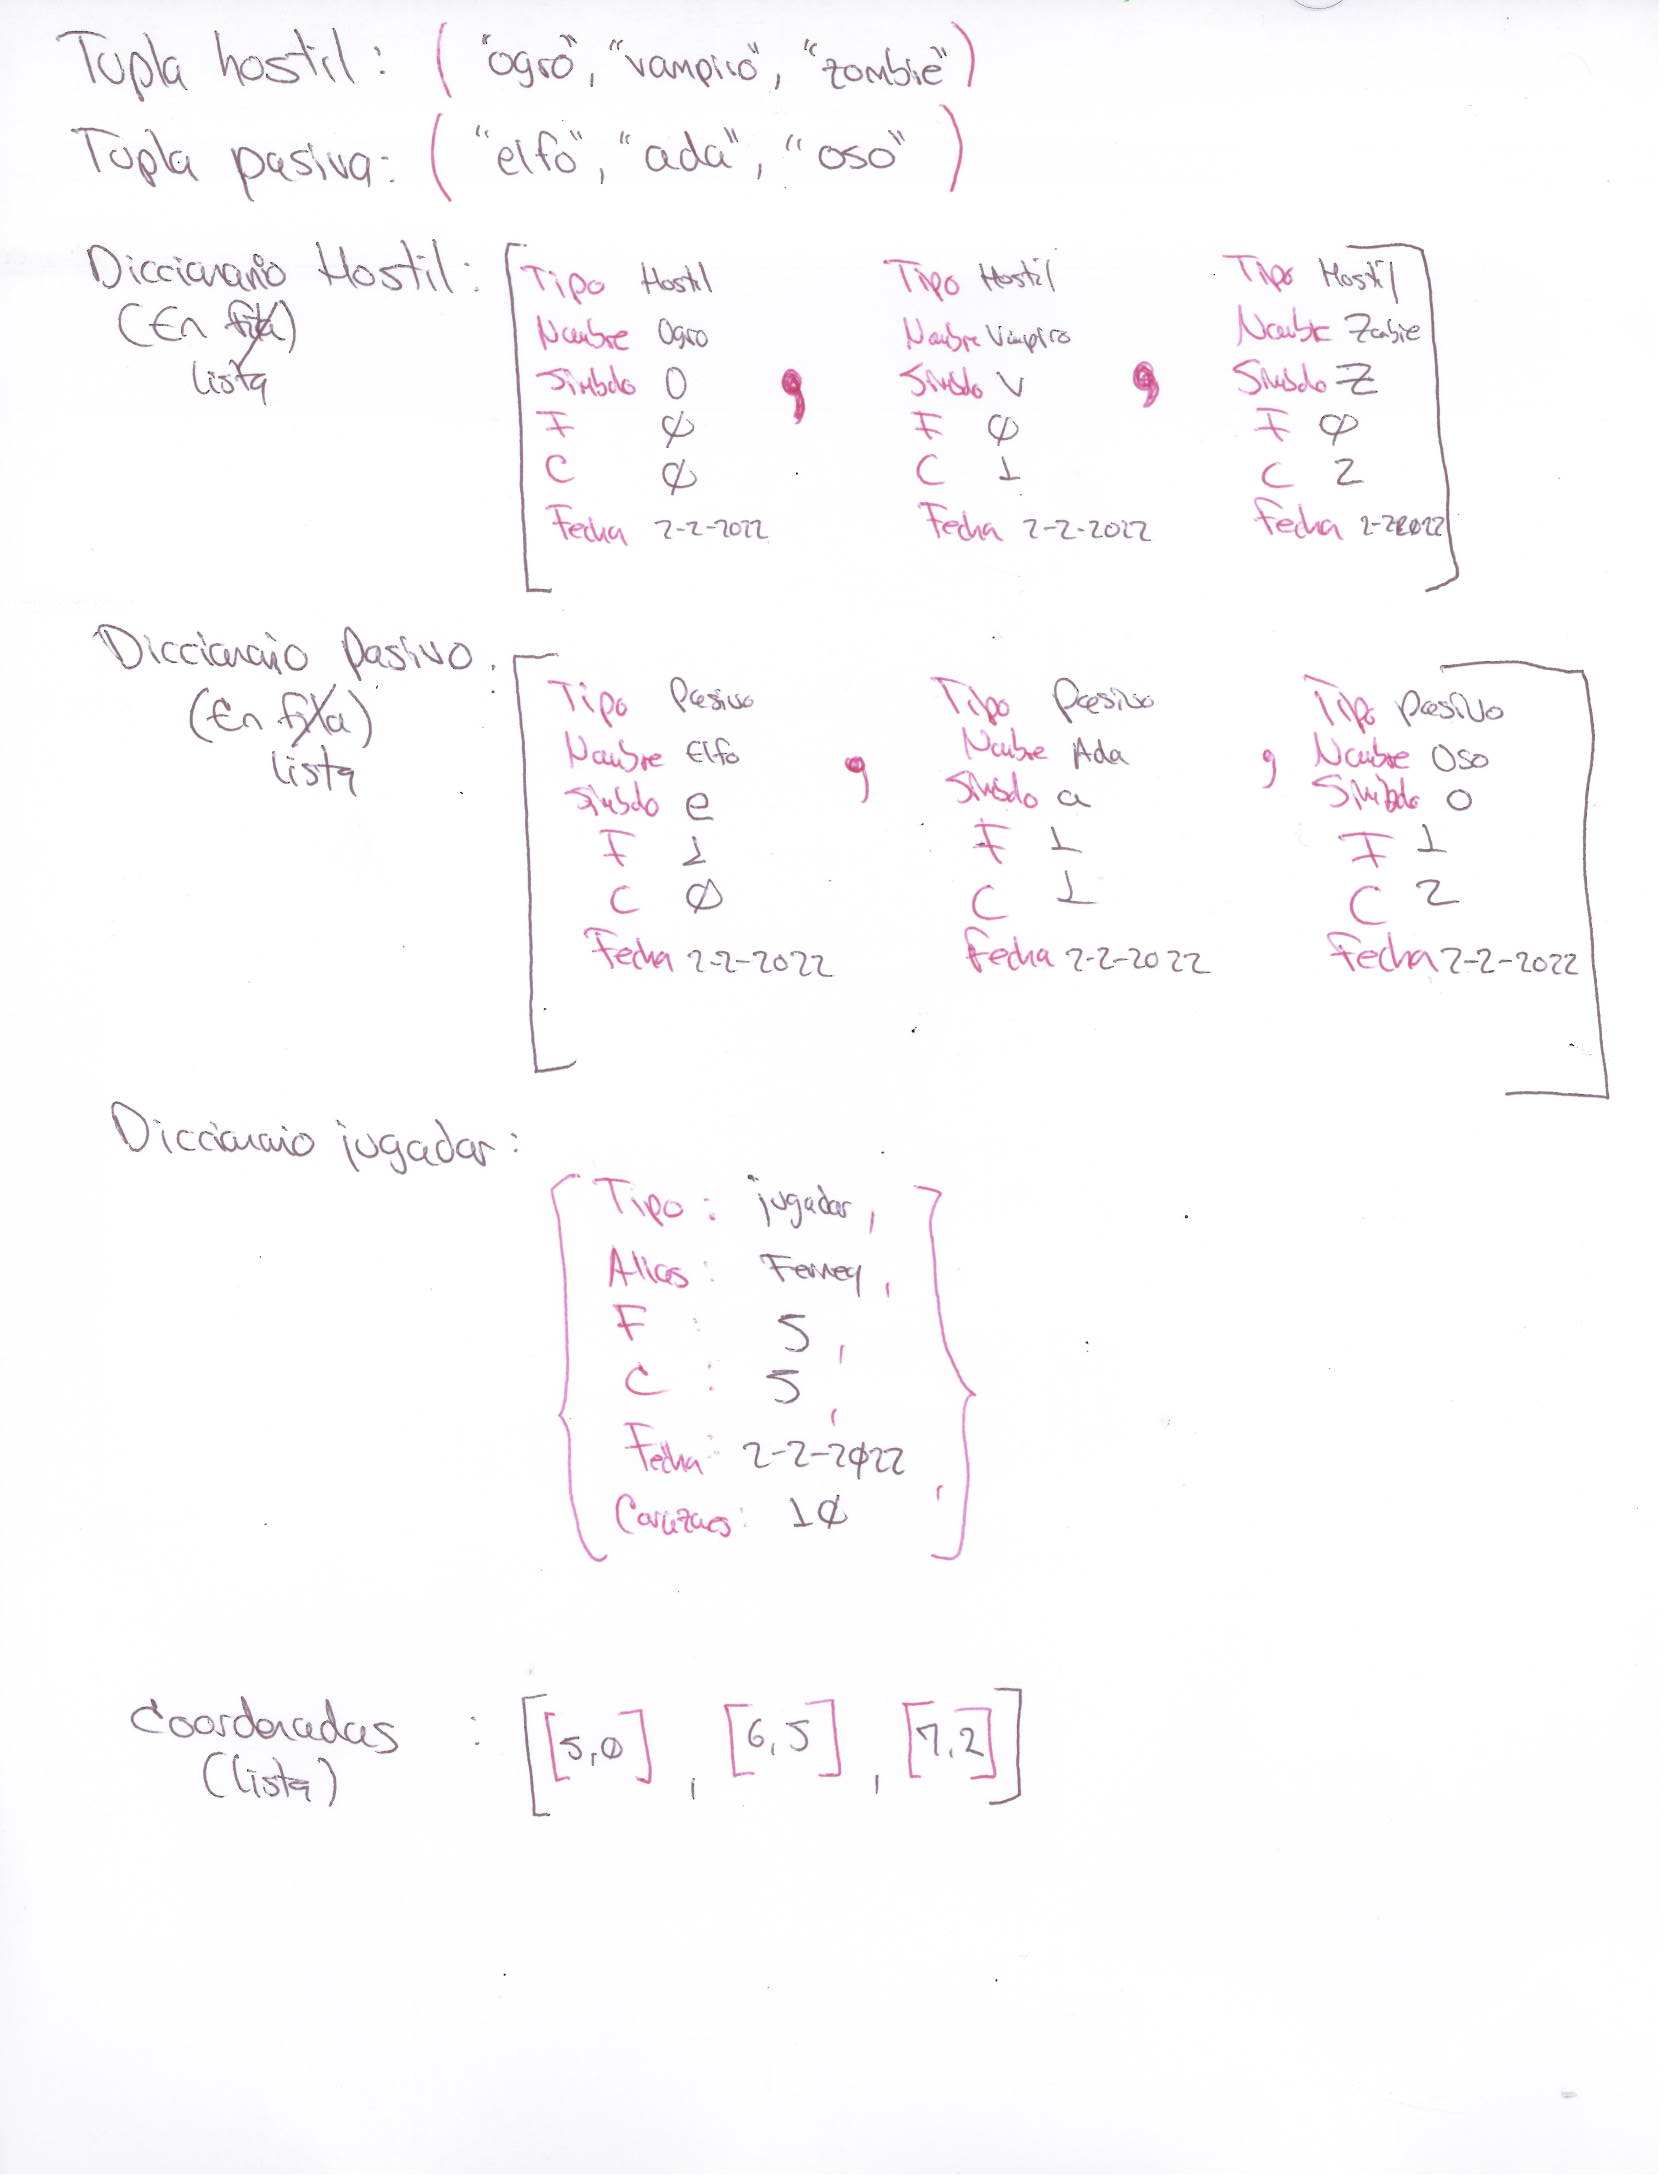 Tupla hostil: ("ogro", "vampiro", "zombie")
Tupla pasiva: ("elfo", "ada", "oso")
Diccionario Hostil:
(En fila)
lista
[Tipo Hostil
Nombre Ogro
Simbolo O
F 0
C 0
Fecha 2-2-2022
,
Tipo Hostil
Nombre Vampiro
Simbolo V
F 0
C 1
Fecha 2-2-2022
,
Tipo Hostil
Nombre Zombie
Simbolo Z
F 0
C 2
Fecha 2-2-2022]
Diccionario Pasivo:
(En fila)
lista
[Tipo Pasivo
Nombre Elfo
Simbolo e
F 1
C 0
Fecha 2-2-2022
,
Tipo Pasivo
Nombre Ada
Simbolo a
F 1
C 1
Fecha 2-2-2022
,
Tipo Pasivo
Nombre Oso
Simbolo o
F 1
C 2
Fecha 2-2-2022]
Diccionario jugador:
{Tipo: jugador,
Alias: Ferney,
F : 5,
C : 5,
Fecha: 2-2-2022,
Corazones: 10}
Coordenadas : [[5,0], [6,5], [7,2]]
(lista)